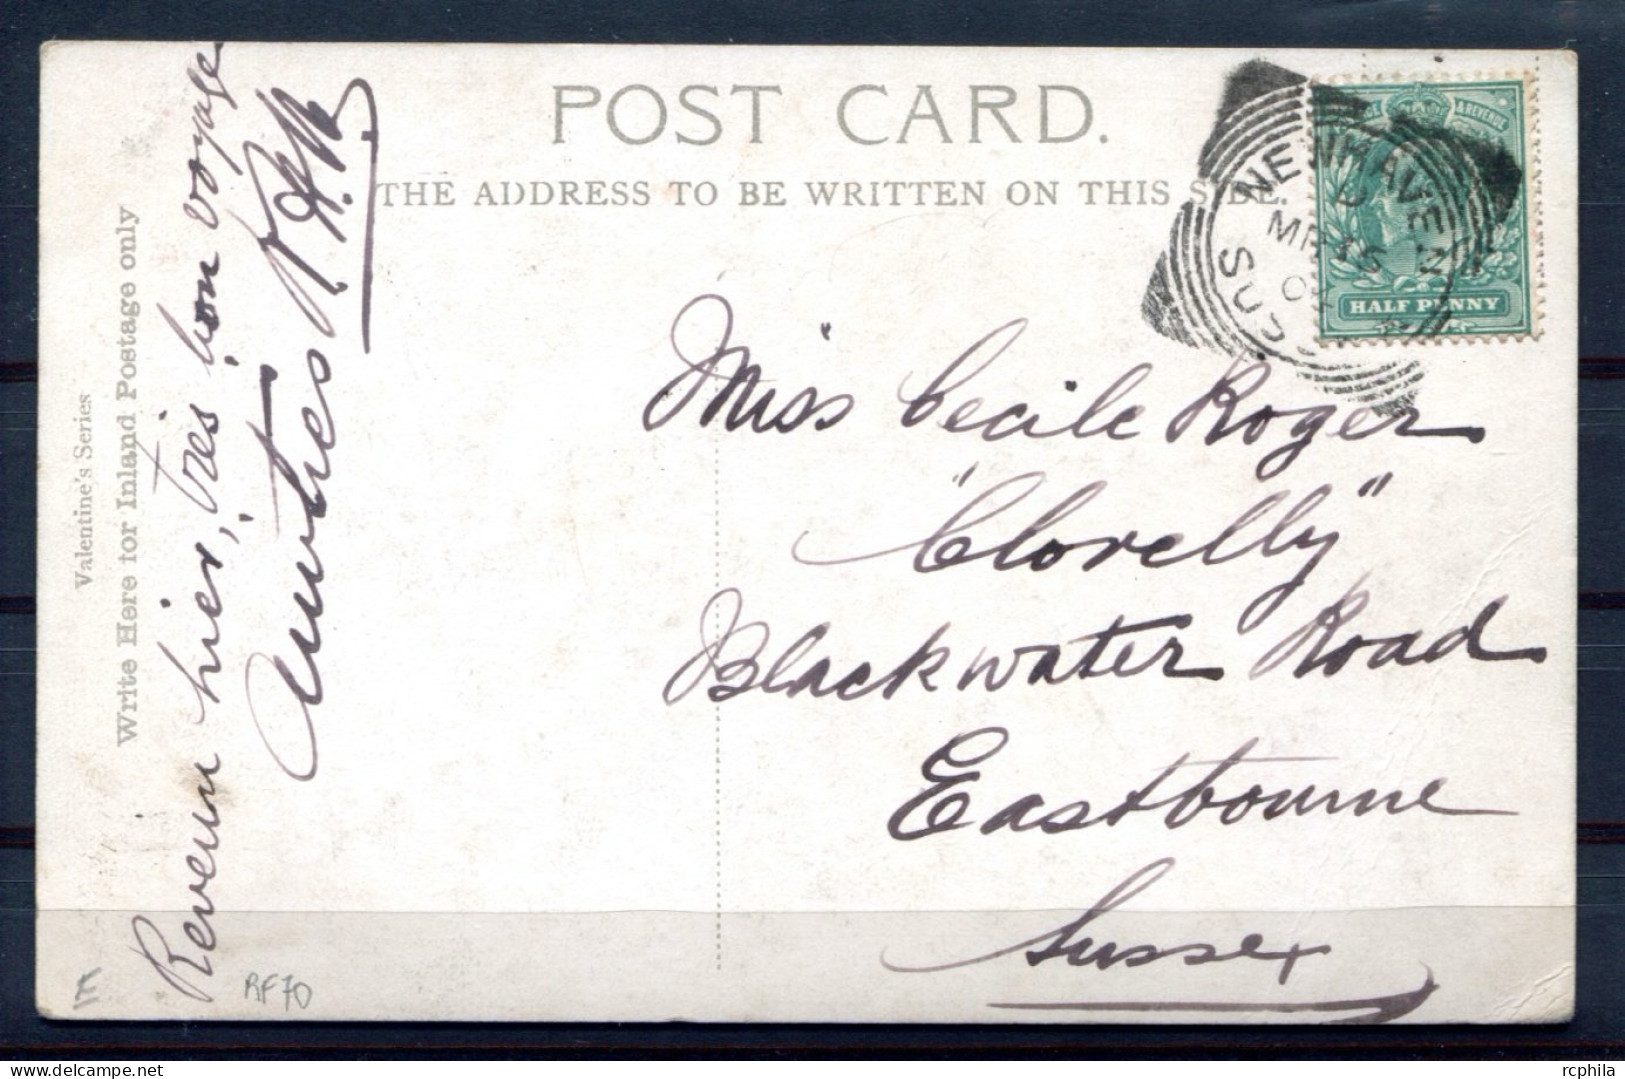 POST CARD.
THE ADDRESS TO BE WRITTEN ON THIS SIDE.
Valentine's Series
Write Here for Inland Postage only
Revenu hier, très bon voyage
NEWHAVEN
MR
SUSSEX
REVENUE
HALF PENNY
Miss Cecile Roger
"Clovelly"
Blackwater Road
Eastbourne
Sussex
RF70
rcphila